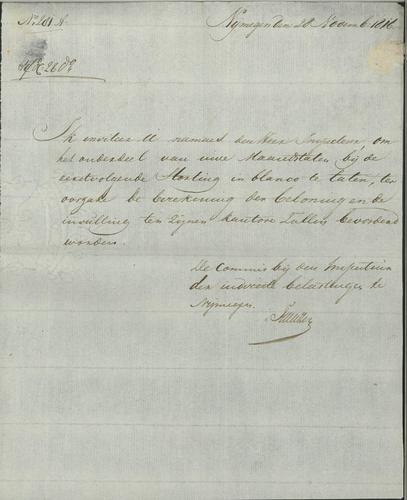 Nymegen den 28 Novemb 1816
Ik inviteer U namens den Heer Inspecteur om
het onderdeel van uwe Maandstaten bij de
eerstvolgende Storting in blanco te laten, ter
oorzake de berekening der beloning en de
invulling ten zijnen kantore zullen bevorderd
worden.
De Commis bij den Inspecteur
der indirecte belastingen te
Nymegen.